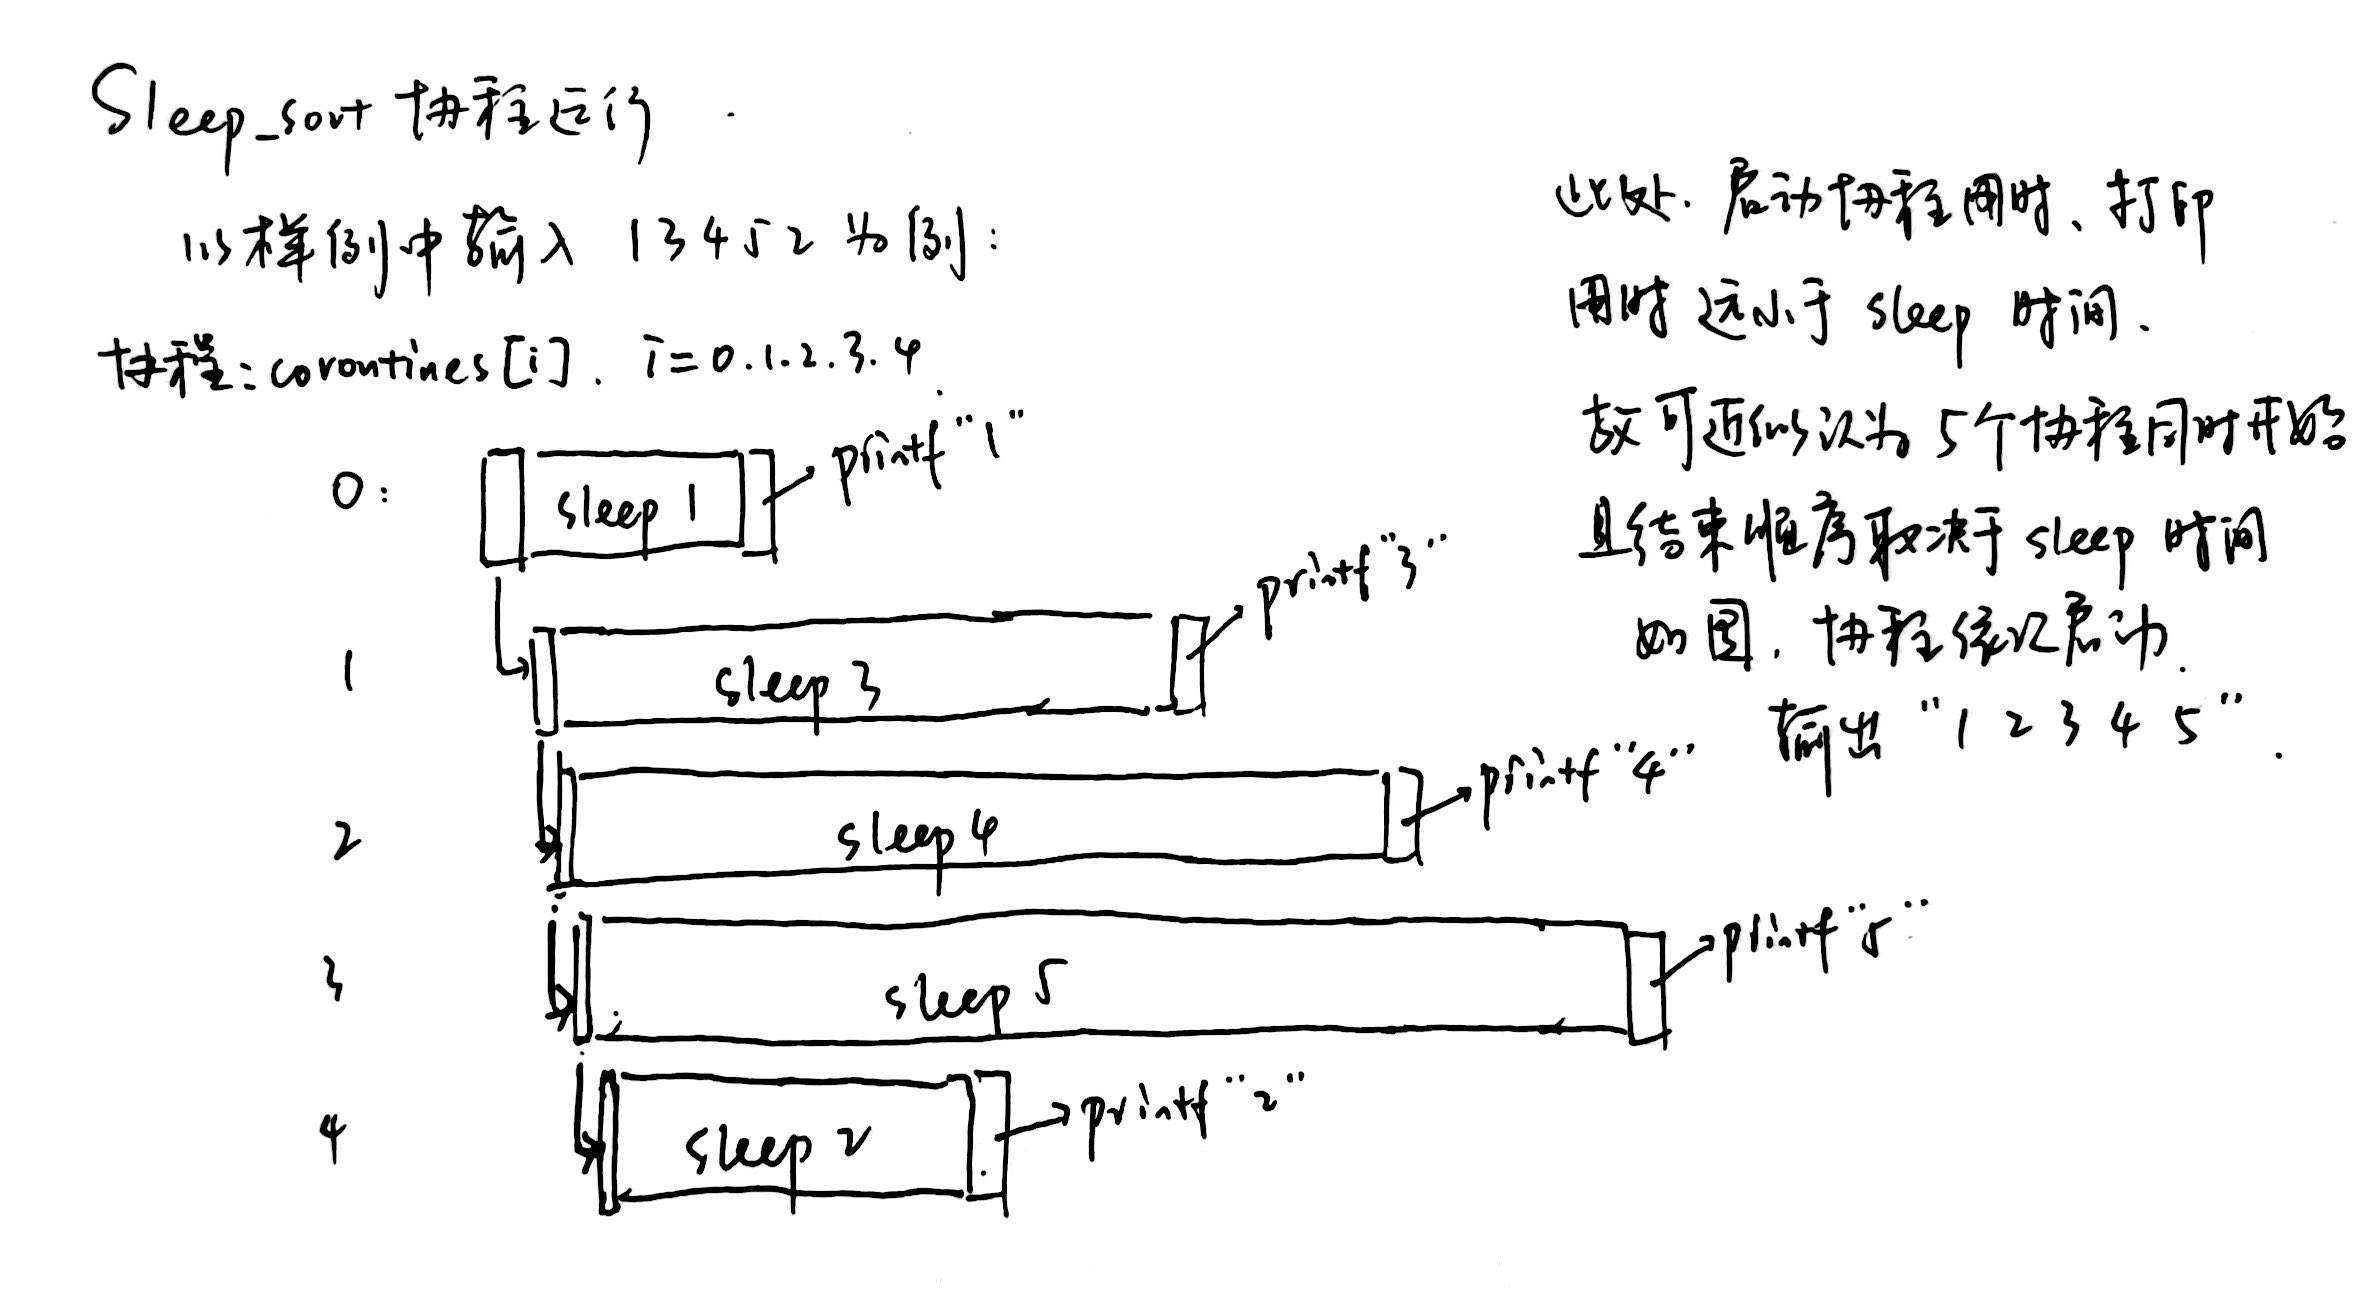 Sleep_sort 协程运行
以样例中输入 1 3 4 5 2 为例:
协程: coroutines[i]. i=0.1.2.3.4
0:
sleep 1
printf "1"
1
sleep 3
printf "3"
2
sleep 4
printf "4"
3
sleep 5
printf "5"
4
sleep 2
printf "2"
此处. 启动协程用时、打印
用时远小于 sleep 时间.
故可近似认为 5个协程同时开始
且结束顺序取决于 sleep 时间
如图. 协程依次启动.
输出 "1 2 3 4 5".